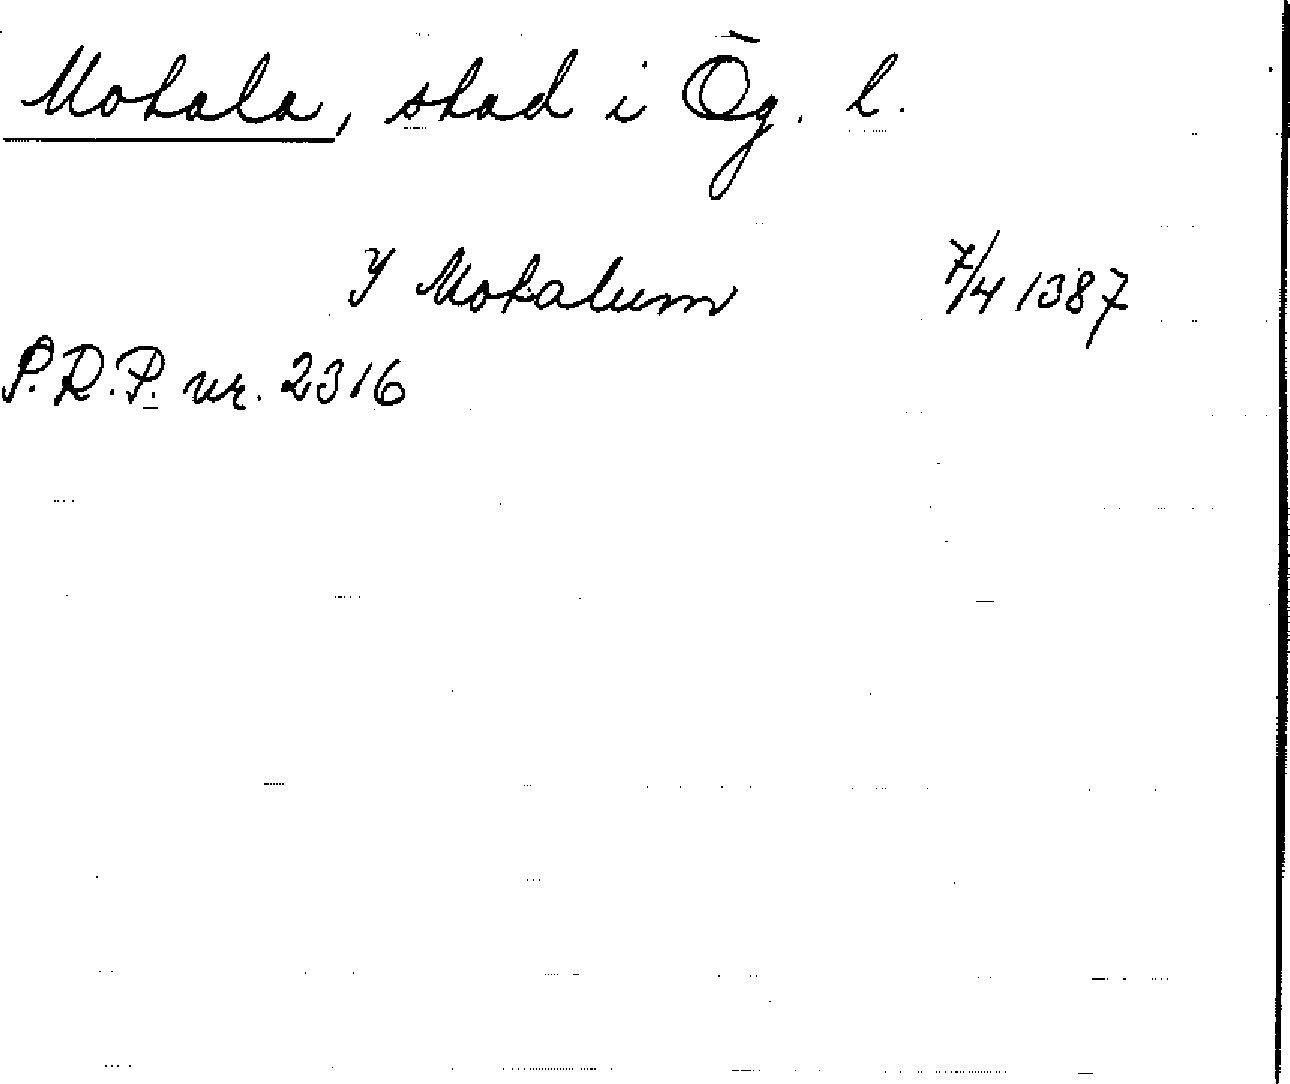 Motala, stad i Ög. l.
Y Motalum 7/4 1387
S.R.P. nr. 2316